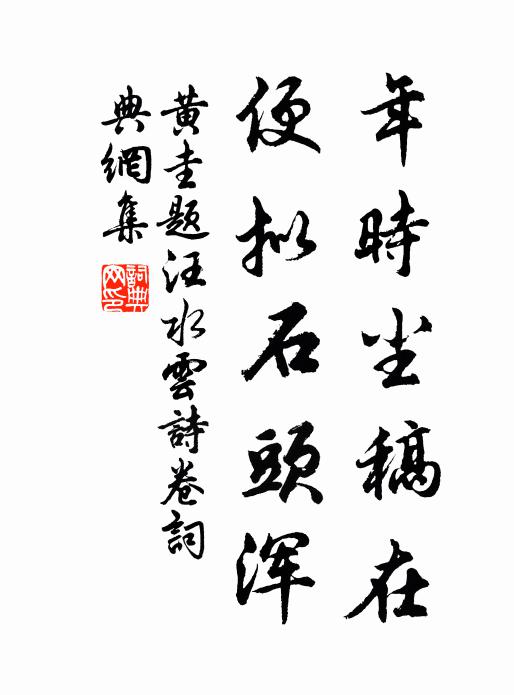 年時尘稿在
便拟石頭浑
黄圭題汪水雲詩卷詞
典網集
詞典網印